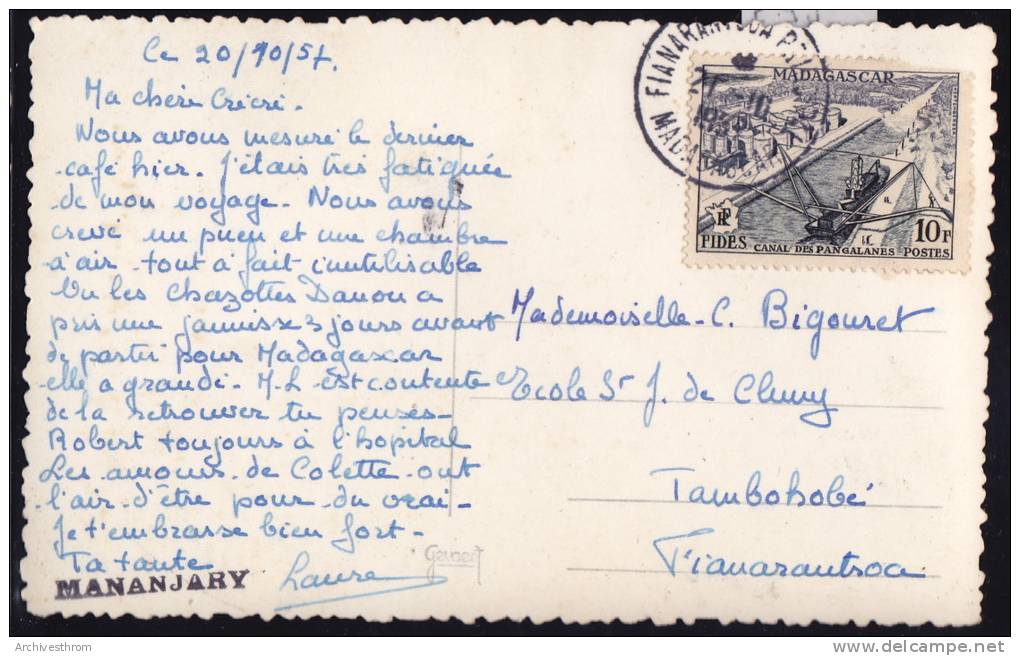 Ce 20/10/57.
Ma chère Crécré.
Nous avons mesuré le dernier
café hier. J'étais très fatiguée
de mon voyage. Nous avons
crevé un pneu et une chambre
à air tout à fait inutilisable
Vu les Chazottes Danou a
pris une jaunisse 3 jours avant
de partir pour Madagascar
elle a grandi. M.L. est contente
de la retrouver tu penses-
Robert toujours à l'hopital
Les amours de Colette ont
l'air d'être pour du vrai-
Je t'embrasse bien fort-
Ta tante
Laure
MANANJARY
Gevaert
FIANARANTSOA
MADAGASCAR
MADAGASCAR
RF
FIDES
CANAL DES PANGALANES
POSTES
10F
Mademoiselle C. Bigouret
Ecole St J. de Cluny
Tambohobé
Fianarantsoa
Archivesthrom
www.delcampe.net